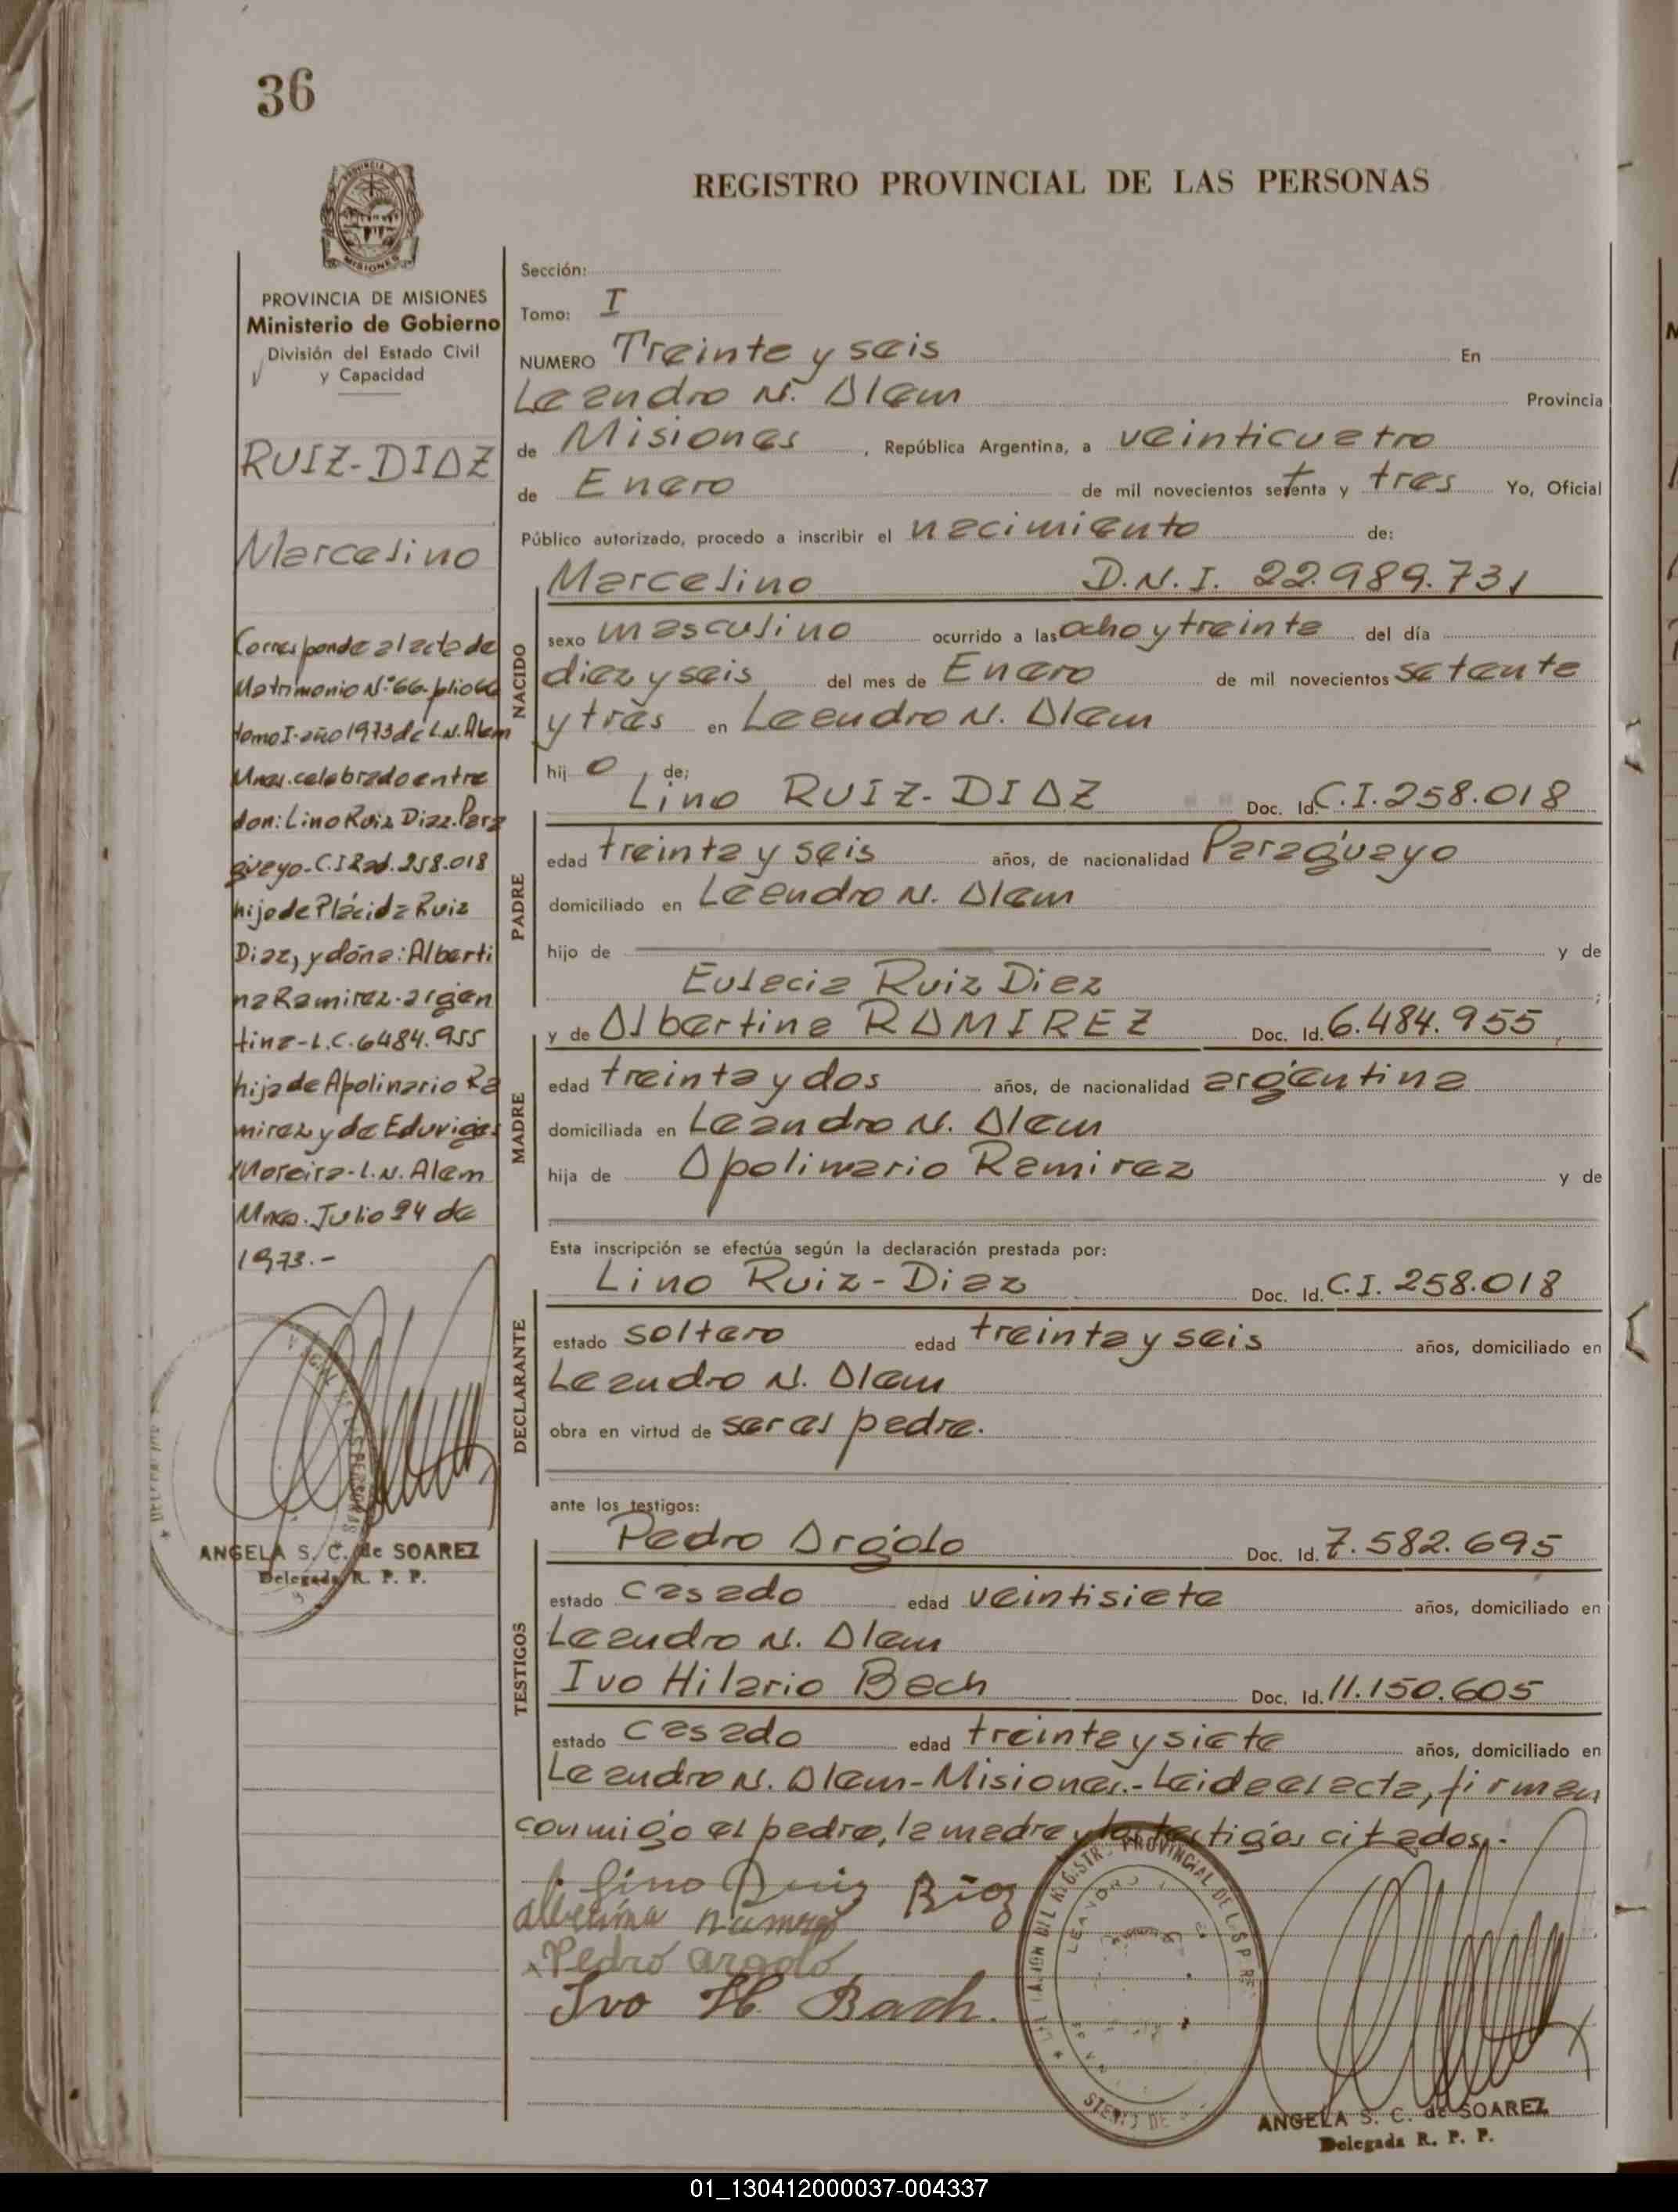 36
REGISTRO PROVINCIAL DE LAS PERSONAS
PROVINCIA DE MISIONES
Ministerio de Gobierno
División del Estado Civil
y Capacidad
RUIZ-DIAZ
Marcelino
Corresponde al acta de
Matrimonio Nº 66-folio 66
tomo I-año 1973 de L.N. Alem
Mnes. celebrado entre
don: Lino Ruiz Diaz. Para
guayo-C.I Rad. 258.018
hijo de Plácida Ruiz
Diaz, y doña: Alberti
na Ramirez-argen
tina-L.C. 6484.955
hija de Apolinario Ra
mirez y de Eduviges
Moreira-L.N. Alem
Mnes. Julio 24 de
1973.-
ANGELA S. C. de SOAREZ
Delegada R. P. P.
Sección:
Tomo: I
NUMERO Treinta y seis En
Leandro N. Alem Provincia
de Misiones, República Argentina, a veinticuatro
de Enero de mil novecientos setenta y tres Yo, Oficial
Público autorizado, procedo a inscribir el nacimiento de:
NACIDO
Marcelino D.N.I. 22.989.731
sexo masculino ocurrido a las ocho y treinta del día
diez y seis del mes de Enero de mil novecientos setenta
y tres en Leandro N. Alem
hijo, de:
PADRE
Lino RUIZ-DIAZ Doc. Id. C.I. 258.018
edad treinta y seis años, de nacionalidad Paraguayo
domiciliado en Leandro N. Alem
hijo de y de
Eulacia Ruiz Diaz ;
MADRE
y de Albertina RAMIREZ Doc. Id. 6.484.955
edad treinta y dos años, de nacionalidad argentina
domiciliada en Leandro N. Alem
hija de Apolinario Ramirez y de
Esta inscripción se efectúa según la declaración prestada por:
DECLARANTE
Lino Ruiz-Diaz Doc. Id. C.I. 258.018
estado soltero edad treinta y seis años, domiciliado en
Leandro N. Alem
obra en virtud de ser el padre.
ante los testigos:
TESTIGOS
Pedro Argolo Doc. Id. 7.582.695
estado casado edad veintisiete años, domiciliado en
Leandro N. Alem
Ivo Hilario Bach Doc. Id. 11.150.605
estado casado edad treinta y siete años, domiciliado en
Leandro N. Alem-Misiones.-Leida el acta, firman
conmigo el padre, la madre y los testigos citados.-
Lino Ruiz Diaz
Pedro argolo
Ivo H. Bach.
ANGELA S. C. de SOAREZ
Delegada R. P. P.
01_130412000037-004337